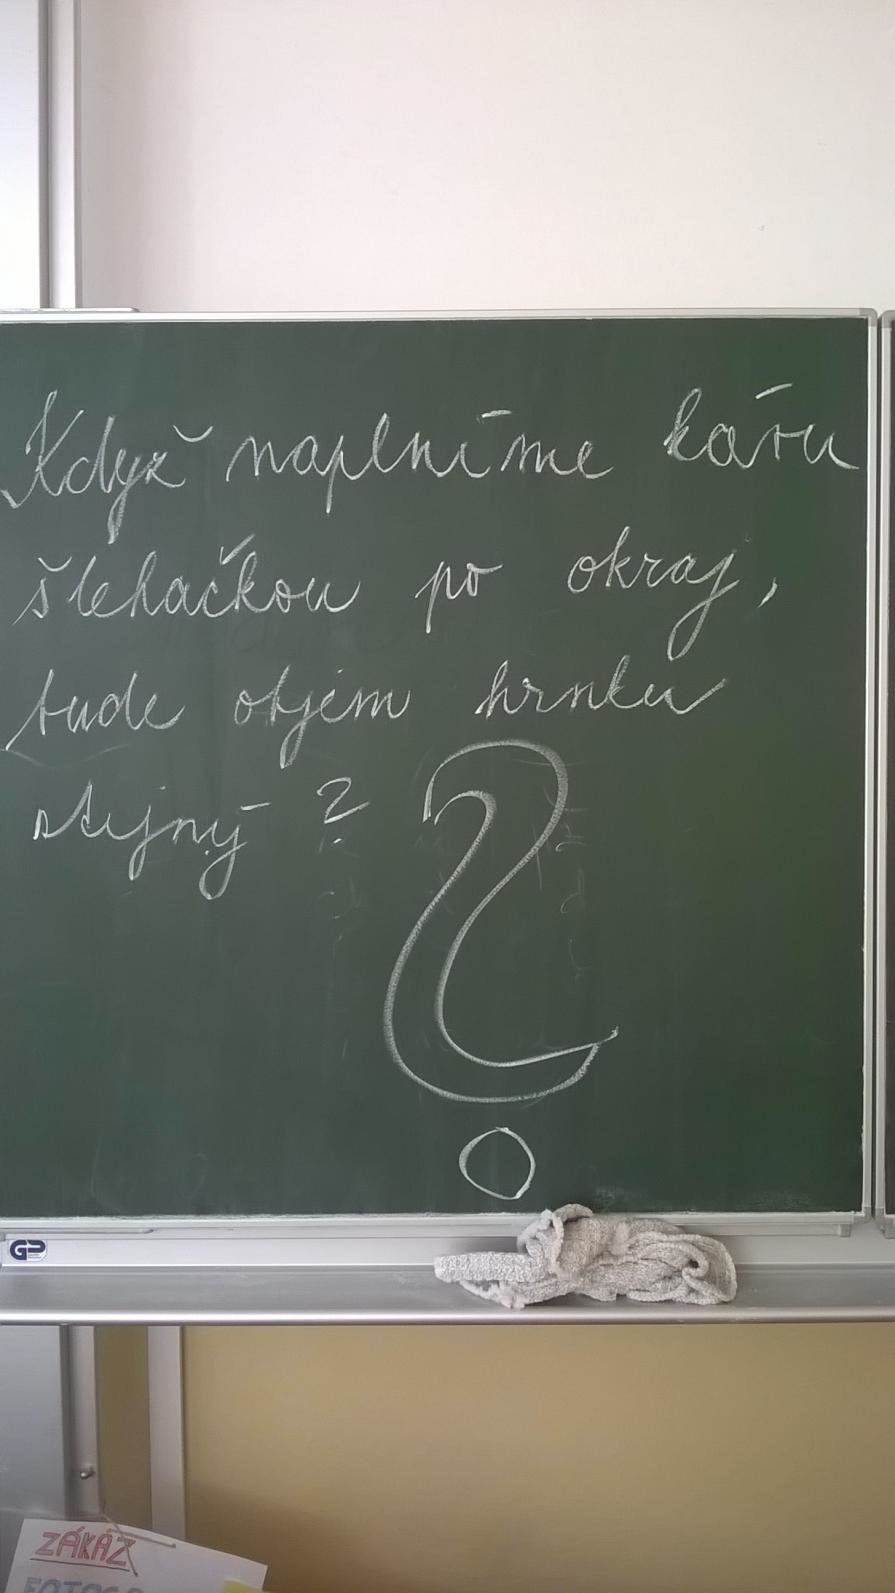 Když naplníme kávu
šlehačkou po okraj,
bude objem hrnku
stejný ?
?
GP
ZÁKAZ